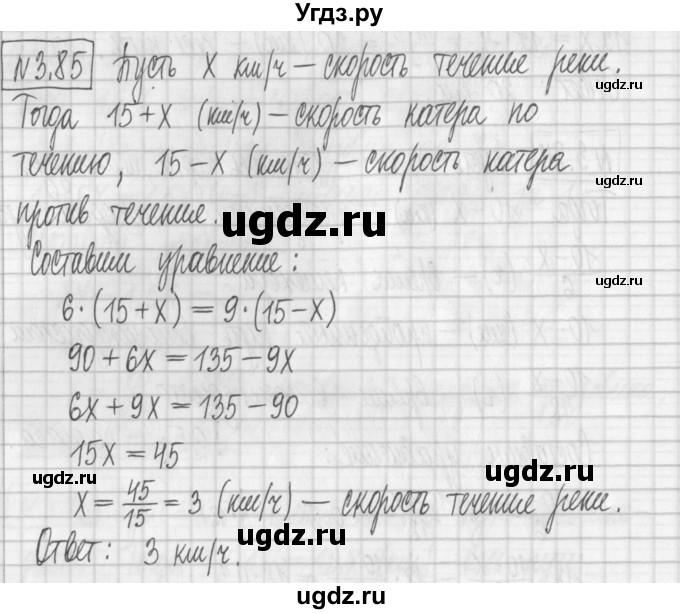 Угдз.ру
№3.85 Пусть х км/ч – скорость течение реки.
Тогда 15+х (км/ч) – скорость катера по
течению, 15–х (км/ч) – скорость катера
против течение.
Составим уравнение:
6·(15+х) = 9·(15–х)
90+6х = 135–9х
6х+9х = 135–90
15х = 45
х = 45/15 = 3 (км/ч) – скорость течение реки.
Ответ: 3 км/ч.
ugdz.ru
ugdz.ru
ugdz.ru
ugdz.ru
ugdz.ru
ugdz.ru
ugdz.ru
ugdz.ru
ugdz.ru